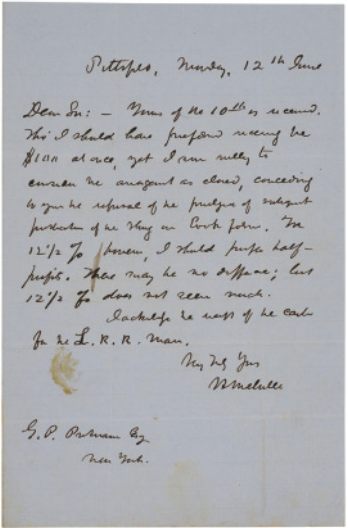 Pittsfield, Monday, 12th June
Dear Sir: — Yours of the 10th is received.
Tho' I should have preferred receiving the
$100 at once, yet I am willing to
consider the arrangement as closed, conceding
to you the refusal of the privilege of subsequent
publication of the thing in Book form. For
12 1/2 % however, I should prefer half-
profits. There may be no difference; but
12 1/2 % does not seem much.
I acknowledge the receipt of the
for the R. R. man.
Very Truly Yours
H Melville
G. P. Putnam Esq
New York.